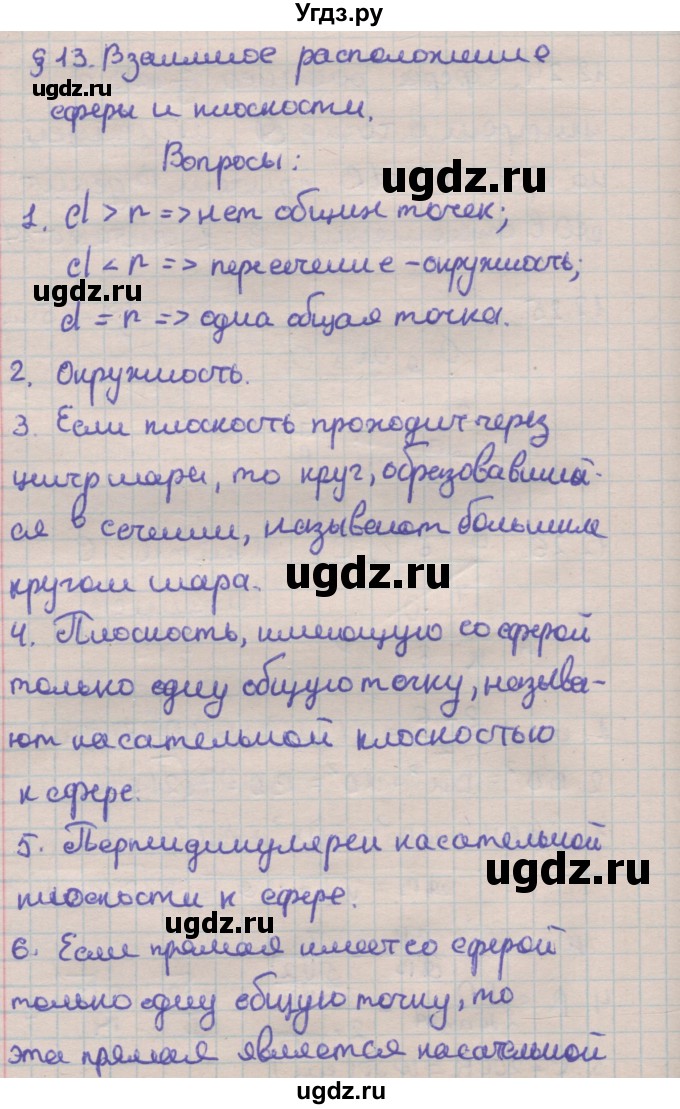 Угдз.ру
§ 13. Взаимное расположение
ugdz.ru
сферы и плоскости.
Вопросы:
ugdz.ru
1. d > r => нет общих точек;
d < r => пересечение - окружность;
ugdz.ru
d = r => одна общая точка.
2. Окружность.
3. Если плоскость проходит через
центр шара, то круг, образовавший-
ugdz.ru
ся в сечении, называют большим
кругом шара.
ugdz.ru
4. Плоскость, имеющую со сферой
только одну общую точку, называ-
ют касательной плоскостью
к сфере.
5. Перпендикулярен касательной
ugdz.ru
плоскости к сфере.
ugdz.ru
6. Если прямая имеет со сферой
только одну общую точку, то
эта прямая является касательной
ugdz.ru